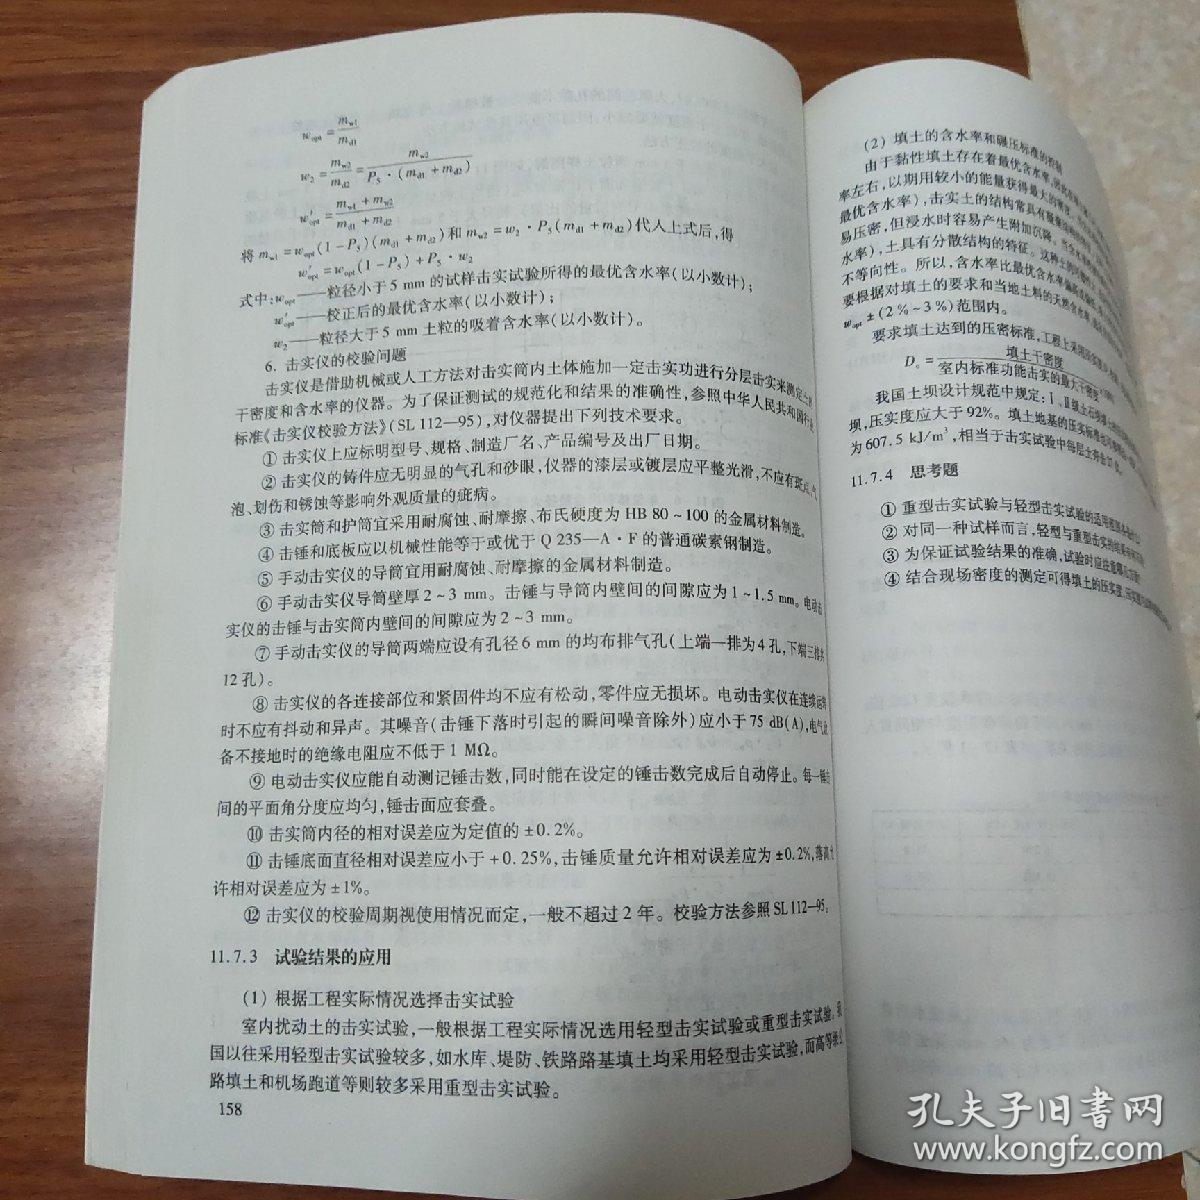 w_opt = m_w1 / m_d1
w_2 = m_w2 / m_d2 = m_w2 / P_5 · (m_d1 + m_d2)
w'_opt = m_w1 + m_w2 / m_d1 + m_d2
将 m_w1 = w_opt(1 - P_5)(m_d1 + m_d2)和 m_w2 = w_2 · P_5(m_d1 + m_d2)代入上式后,得
w'_opt = w_opt(1 - P_5) + P_5 · w_2
式中:w_opt——粒径小于 5 mm 的试样击实试验所得的最优含水率(以小数计);
w'_opt——校正后的最优含水率(以小数计);
w_2——粒径大于 5 mm 土粒的吸着含水率(以小数计)。
6. 击实仪的校验问题
击实仪是借助机械或人工方法对击实筒内土体施加一定击实功进行分层击实来测定
干密度和含水率的仪器。为了保证测试的规范化和结果的准确性,参照中华人民共和国
标准《击实仪校验方法》(SL 112—95),对仪器提出下列技术要求。
① 击实仪上应标明型号、规格、制造厂名、产品编号及出厂日期。
② 击实仪的铸件应无明显的气孔和砂眼,仪器的漆层或镀层应平整光滑,不应有斑点、气
泡、划伤和锈蚀等影响外观质量的疵病。
③ 击实筒和护筒宜采用耐腐蚀、耐摩擦、布氏硬度为 HB 80 ~ 100 的金属材料制造。
④ 击锤和底板应以机械性能等于或优于 Q 235—A · F 的普通碳素钢制造。
⑤ 手动击实仪的导筒宜用耐腐蚀、耐摩擦的金属材料制造。
⑥ 手动击实仪导筒壁厚 2 ~ 3 mm。击锤与导筒内壁间的间隙应为 1 ~ 1.5 mm。电动击
实仪的击锤与击实筒内壁间的间隙应为 2 ~ 3 mm。
⑦ 手动击实仪的导筒两端应设有孔径 6 mm 的均布排气孔(上端一排为 4 孔,下端三排共
12 孔)。
⑧ 击实仪的各连接部位和紧固件均不应有松动,零件应无损坏。电动击实仪在连续运转
时不应有抖动和异声。其噪音(击锤下落时引起的瞬间噪音除外)应小于 75 dB(A),电气设
备不接地时的绝缘电阻应不低于 1 MΩ。
⑨ 电动击实仪应能自动测记锤击数,同时能在设定的锤击数完成后自动停止。每一锤击
间的平面角分度应均匀,锤击面应套叠。
⑩ 击实筒内径的相对误差应为定值的 ±0.2%。
⑪ 击锤底面直径相对误差应小于 +0.25%,击锤质量允许相对误差应为 ±0.2%,落高允
许相对误差应为 ±1%。
⑫ 击实仪的校验周期视使用情况而定,一般不超过 2 年。校验方法参照 SL 112—95。
11.7.3 试验结果的应用
(1) 根据工程实际情况选择击实试验
室内扰动土的击实试验,一般根据工程实际情况选用轻型击实试验或重型击实试验。我
国以往采用轻型击实试验较多,如水库、堤防、铁路路基填土均采用轻型击实试验,而高等级公
路填土和机场跑道等则较多采用重型击实试验。
158
(2) 填土的含水率和碾压标准的控制
由于黏性填土存在着最优含水率,
率左右,以期用较小的能量获得最大的密度。
最优含水率),击实土的结构常具有
易压密,但浸水时容易产生附加沉降。
水率),土具有分散结构的特征。
不等向性。所以,含水率比最优含水率
要根据对填土的要求和当地土料的天然含水率,
w_opt ± (2% ~ 3%)范围内。
要求填土达到的压密标准,工程上采用
D_c = 填土干密度 / 室内标准功能击实的最大干密度
我国土坝设计规范中规定:Ⅰ、Ⅱ级
坝,压实度应大于 92%。填土地基的压实标准也可
为 607.5 kJ/m³,相当于击实试验中每层土夯击
11.7.4 思考题
① 重型击实试验与轻型击实试验的适用范围
② 对同一种试样而言,轻型与重型击实
③ 为保证试验结果的准确,试验时应注意哪
④ 结合现场密度的测定可得填土的压实度,
孔夫子旧书网
www.kongfz.com